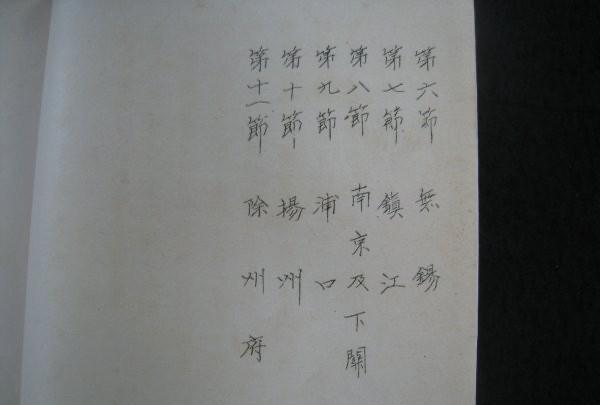 第六節 無錫
第七節 鎮江
第八節 南京及下關
第九節 浦口
第十節 揚州
第十一節 除州府